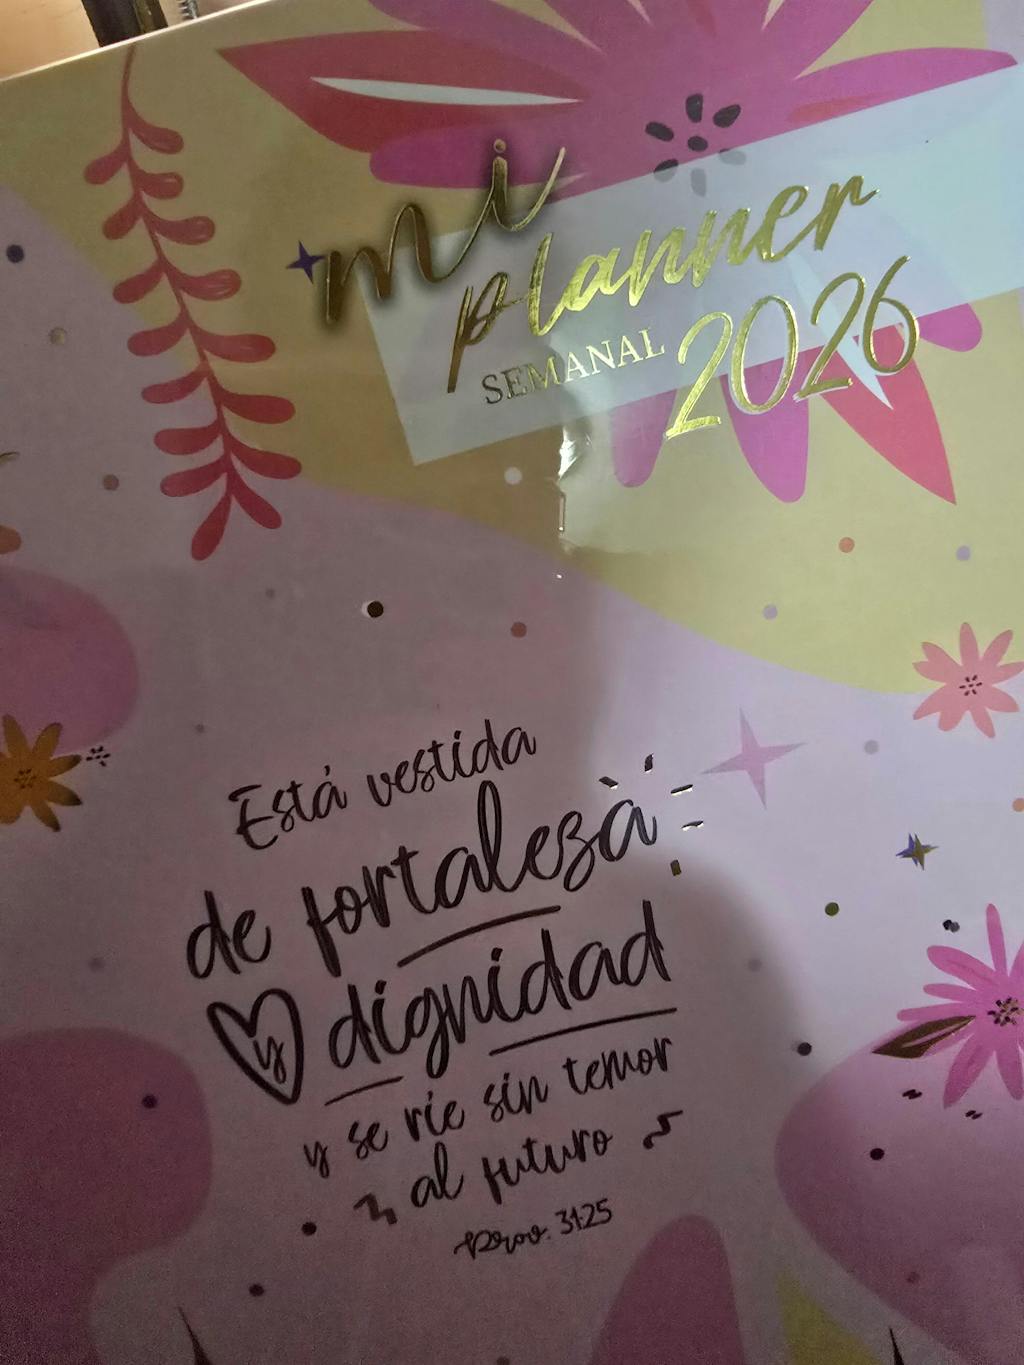 mi
planner
SEMANAL 2026
Está vestida
de fortaleza
y dignidad
y se ríe sin temor
al futuro
Prov. 31:25